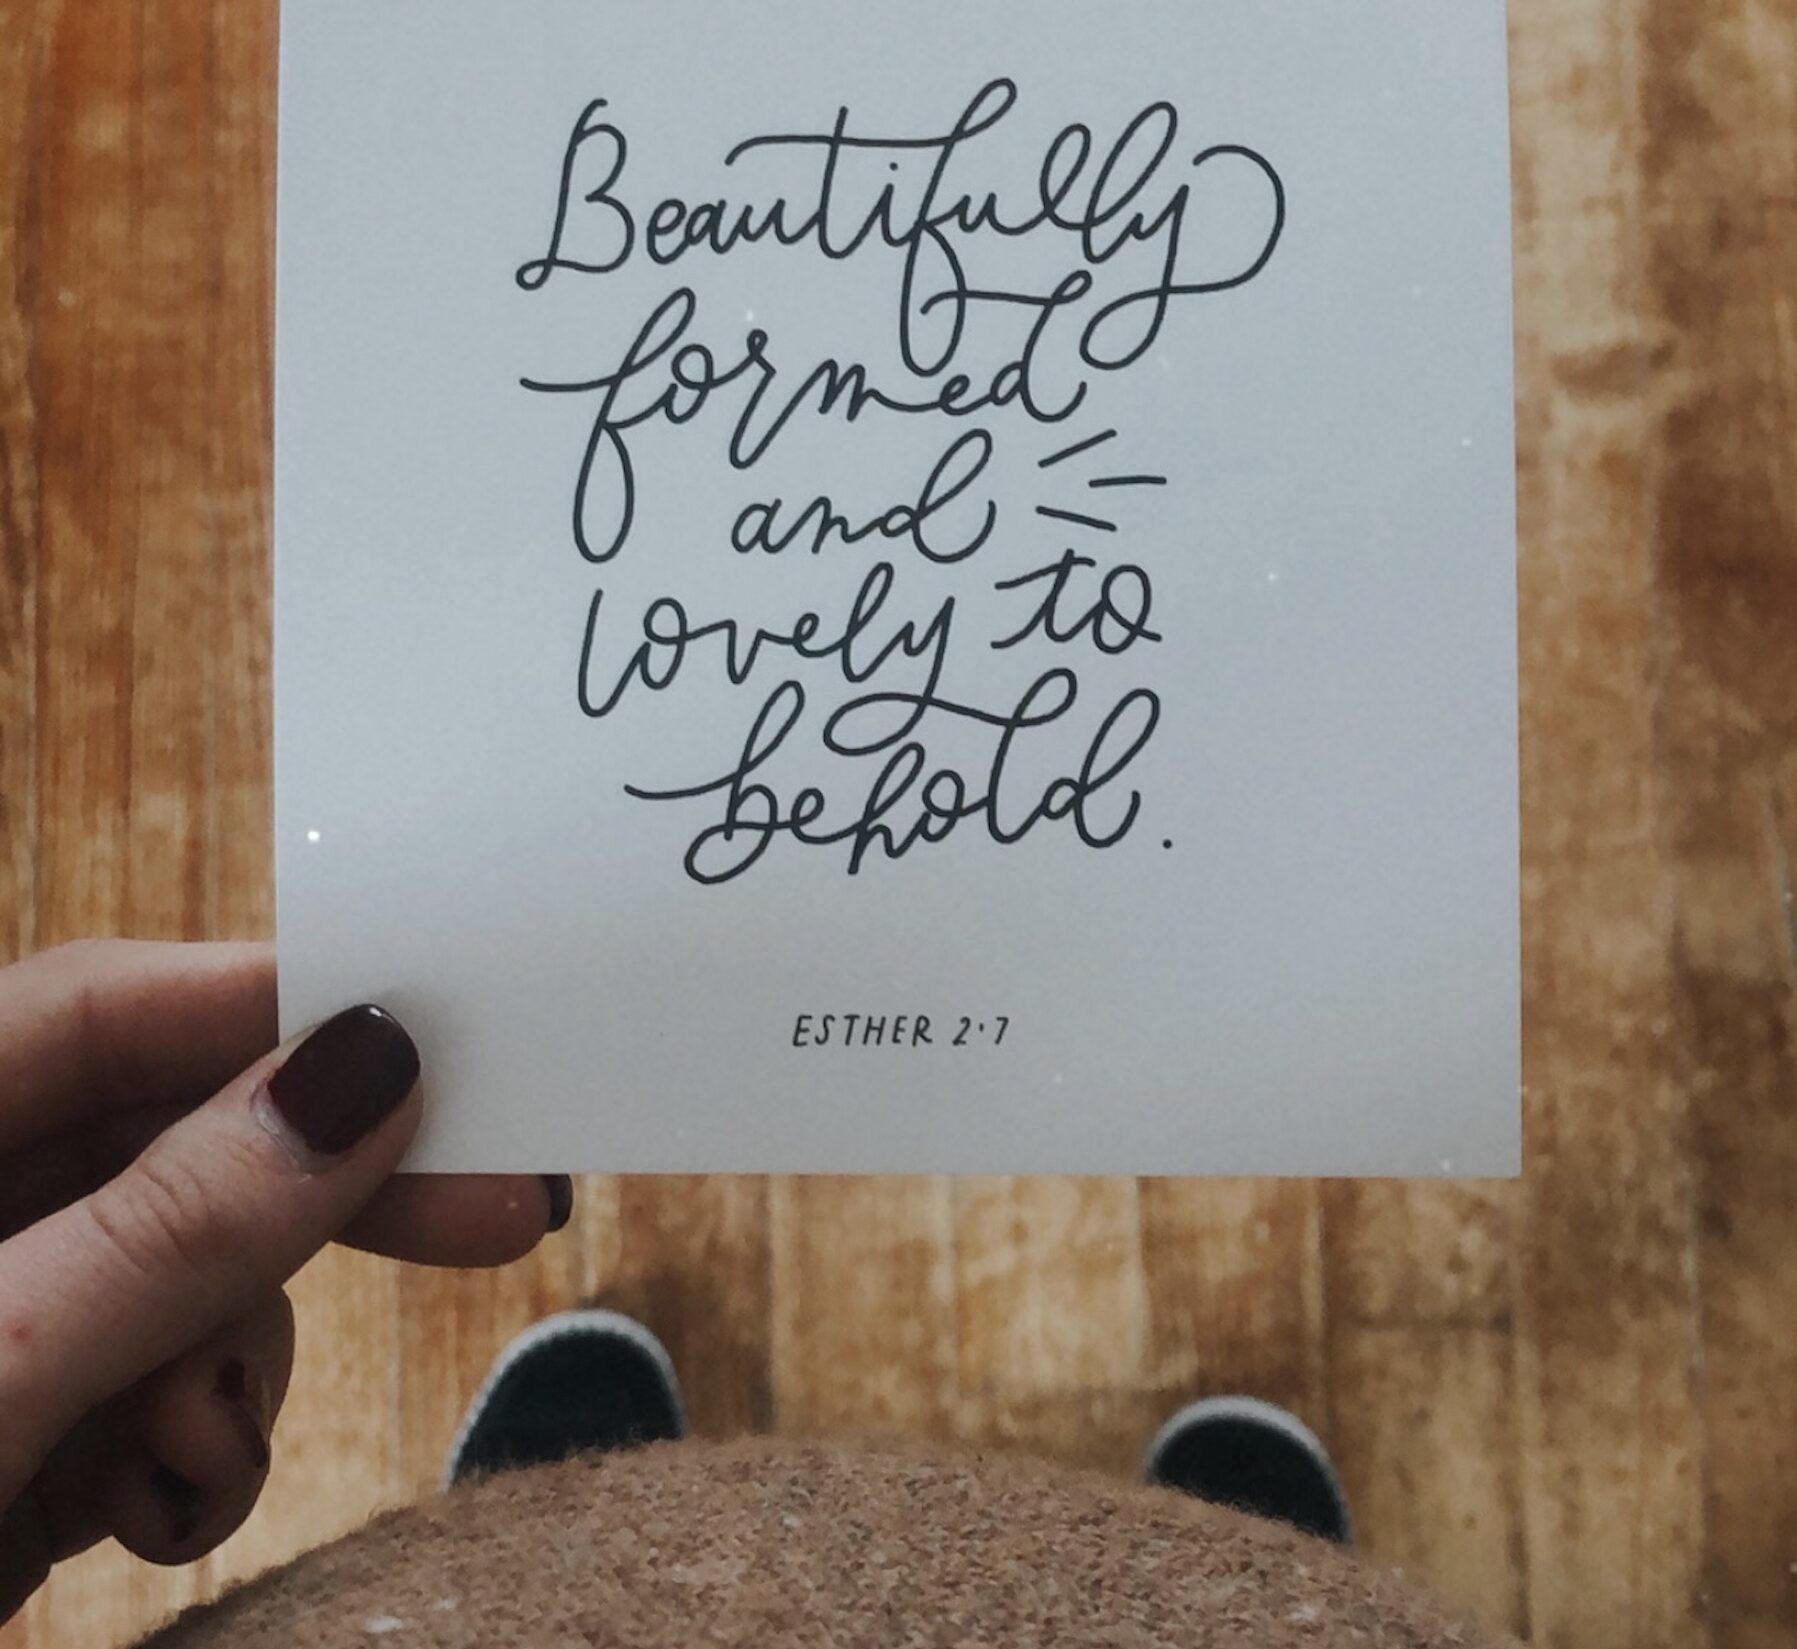 Beautifully
formed
and
lovely to
behold.
ESTHER 2·7